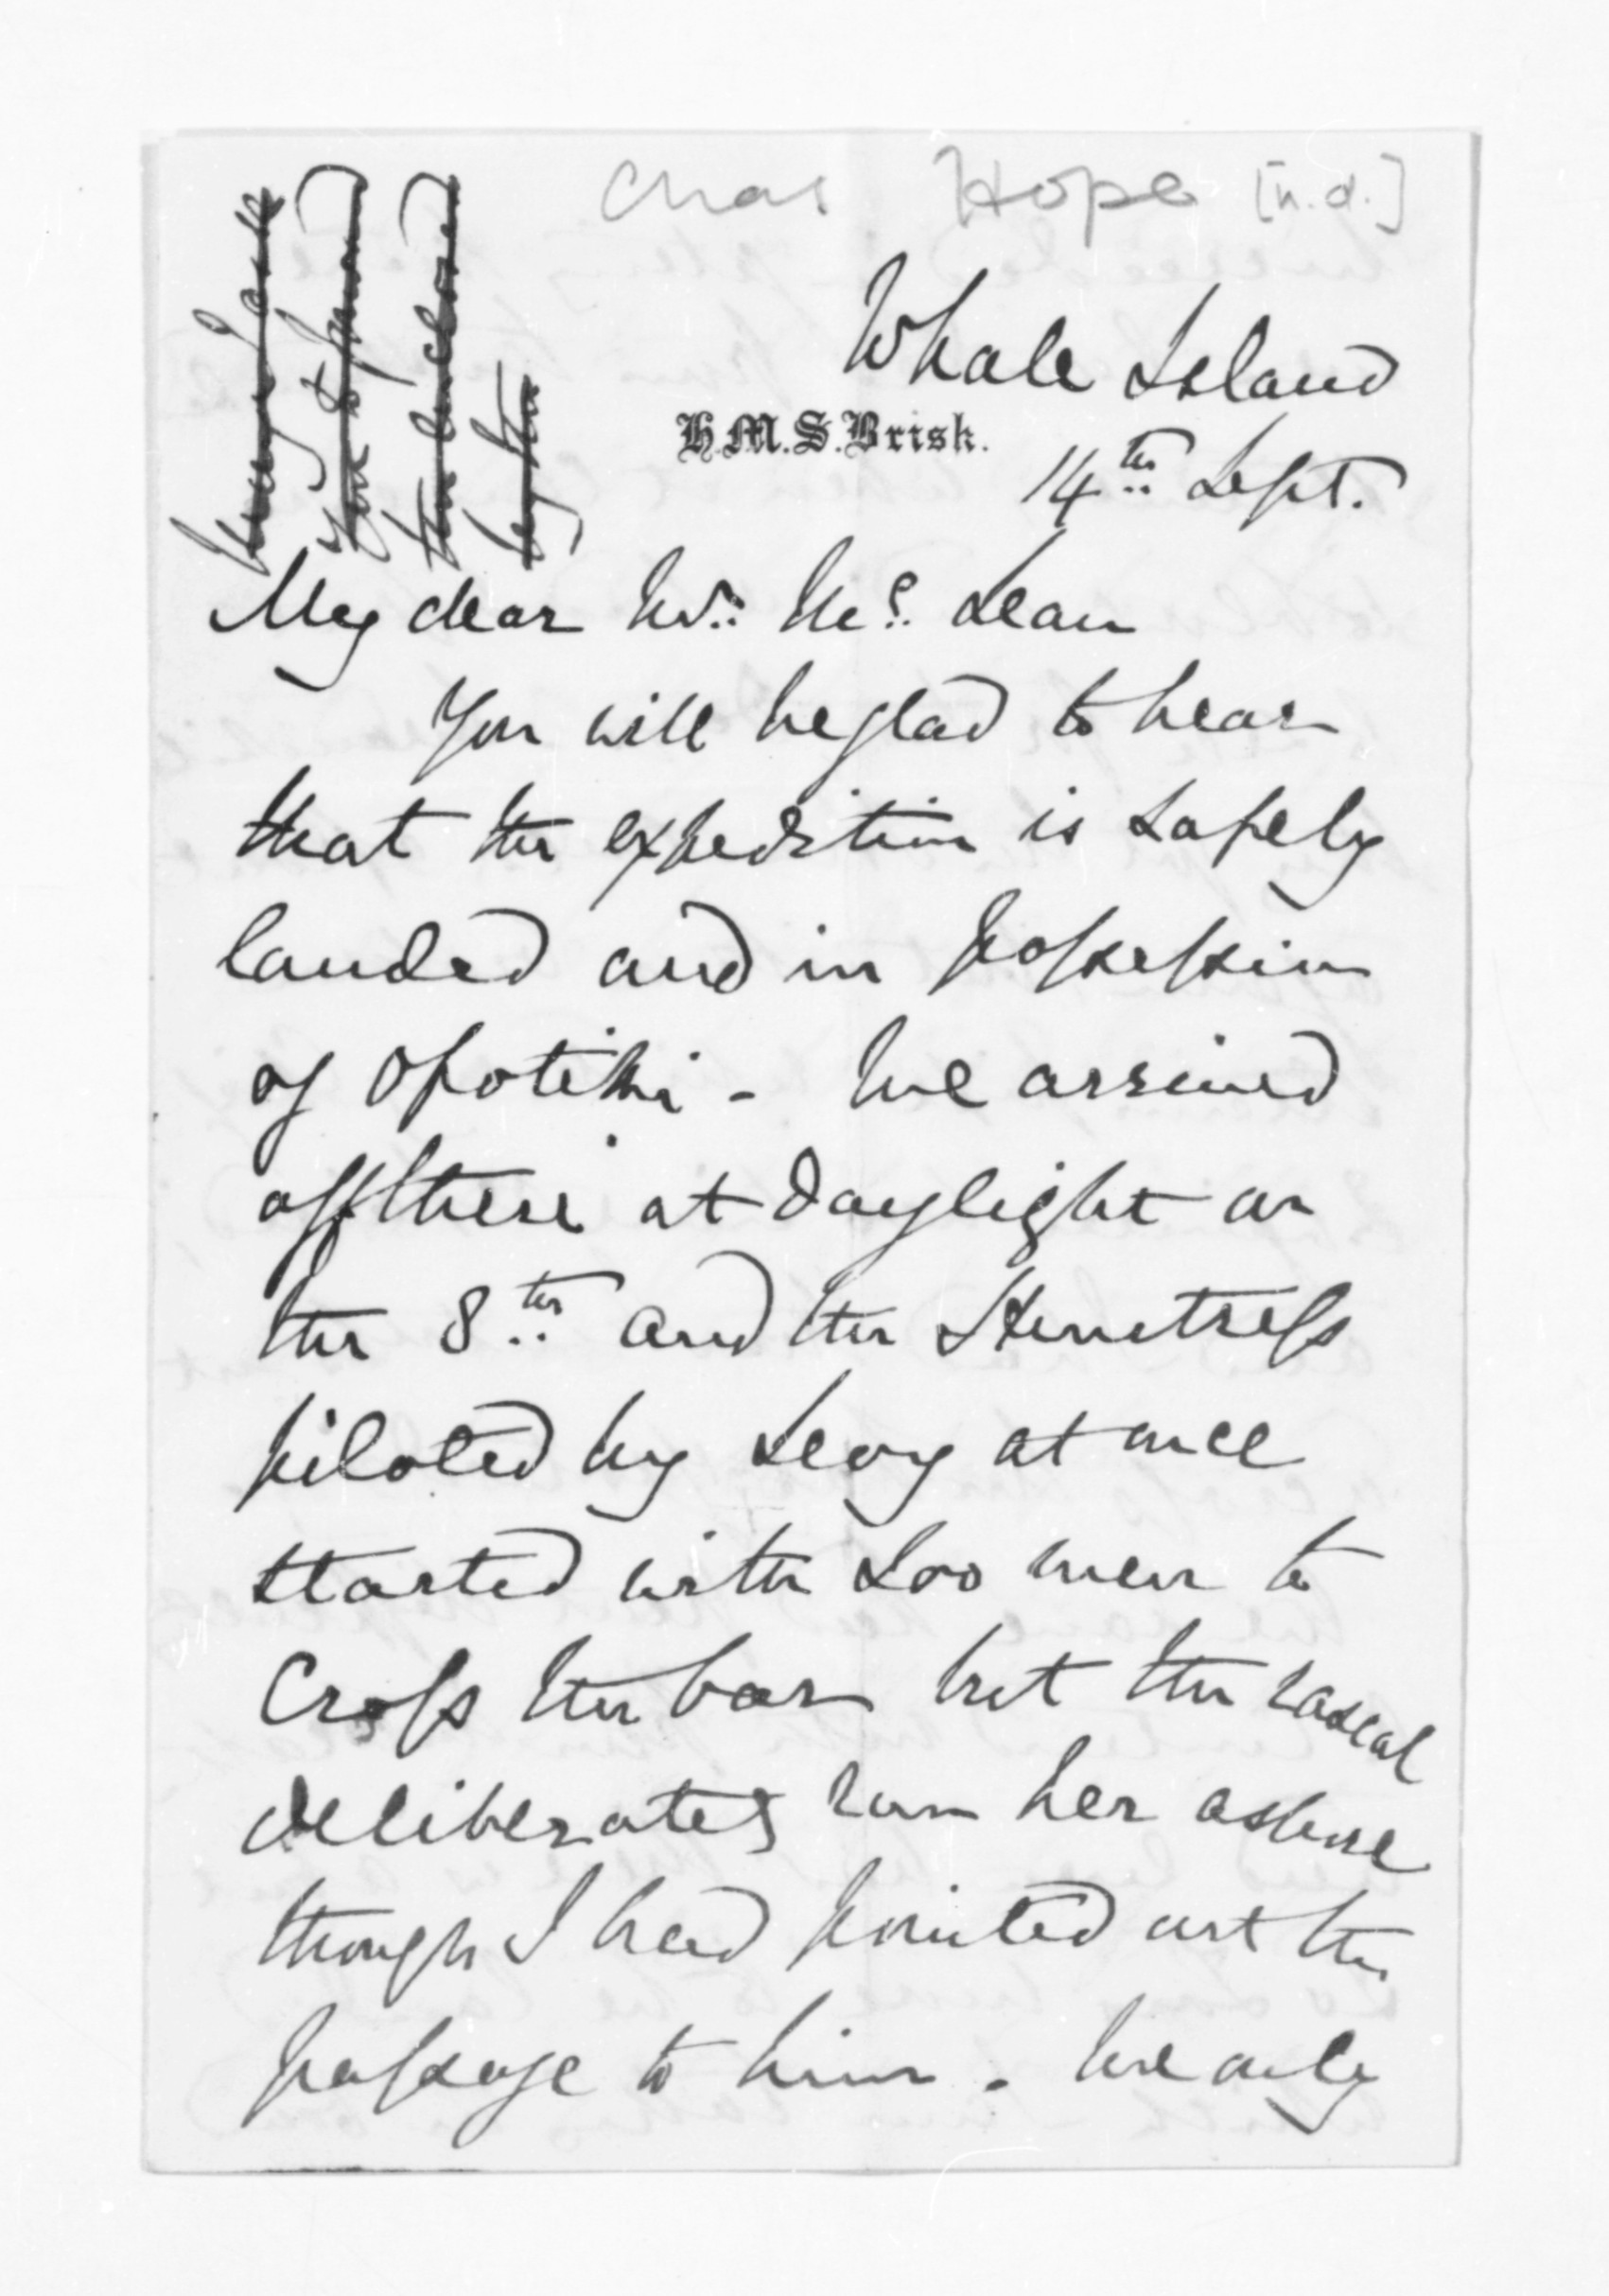 Chas Hope [n.d.]
may I ask
you to forward
the enclosed
Whale Island
H.M.S. Brisk.
14th Sept.
My dear Mr. Mc. Lean
You will be glad to hear
that the expedition is safely
landed and in possession
of Opotiki - We arrived
off there at daylight on
the 8th and the Huntress
piloted by Levy at once
started with 200 men to
Cross the bar but the rascal
deliberately run her ashore
though I had pointed out the
passage to him. We only